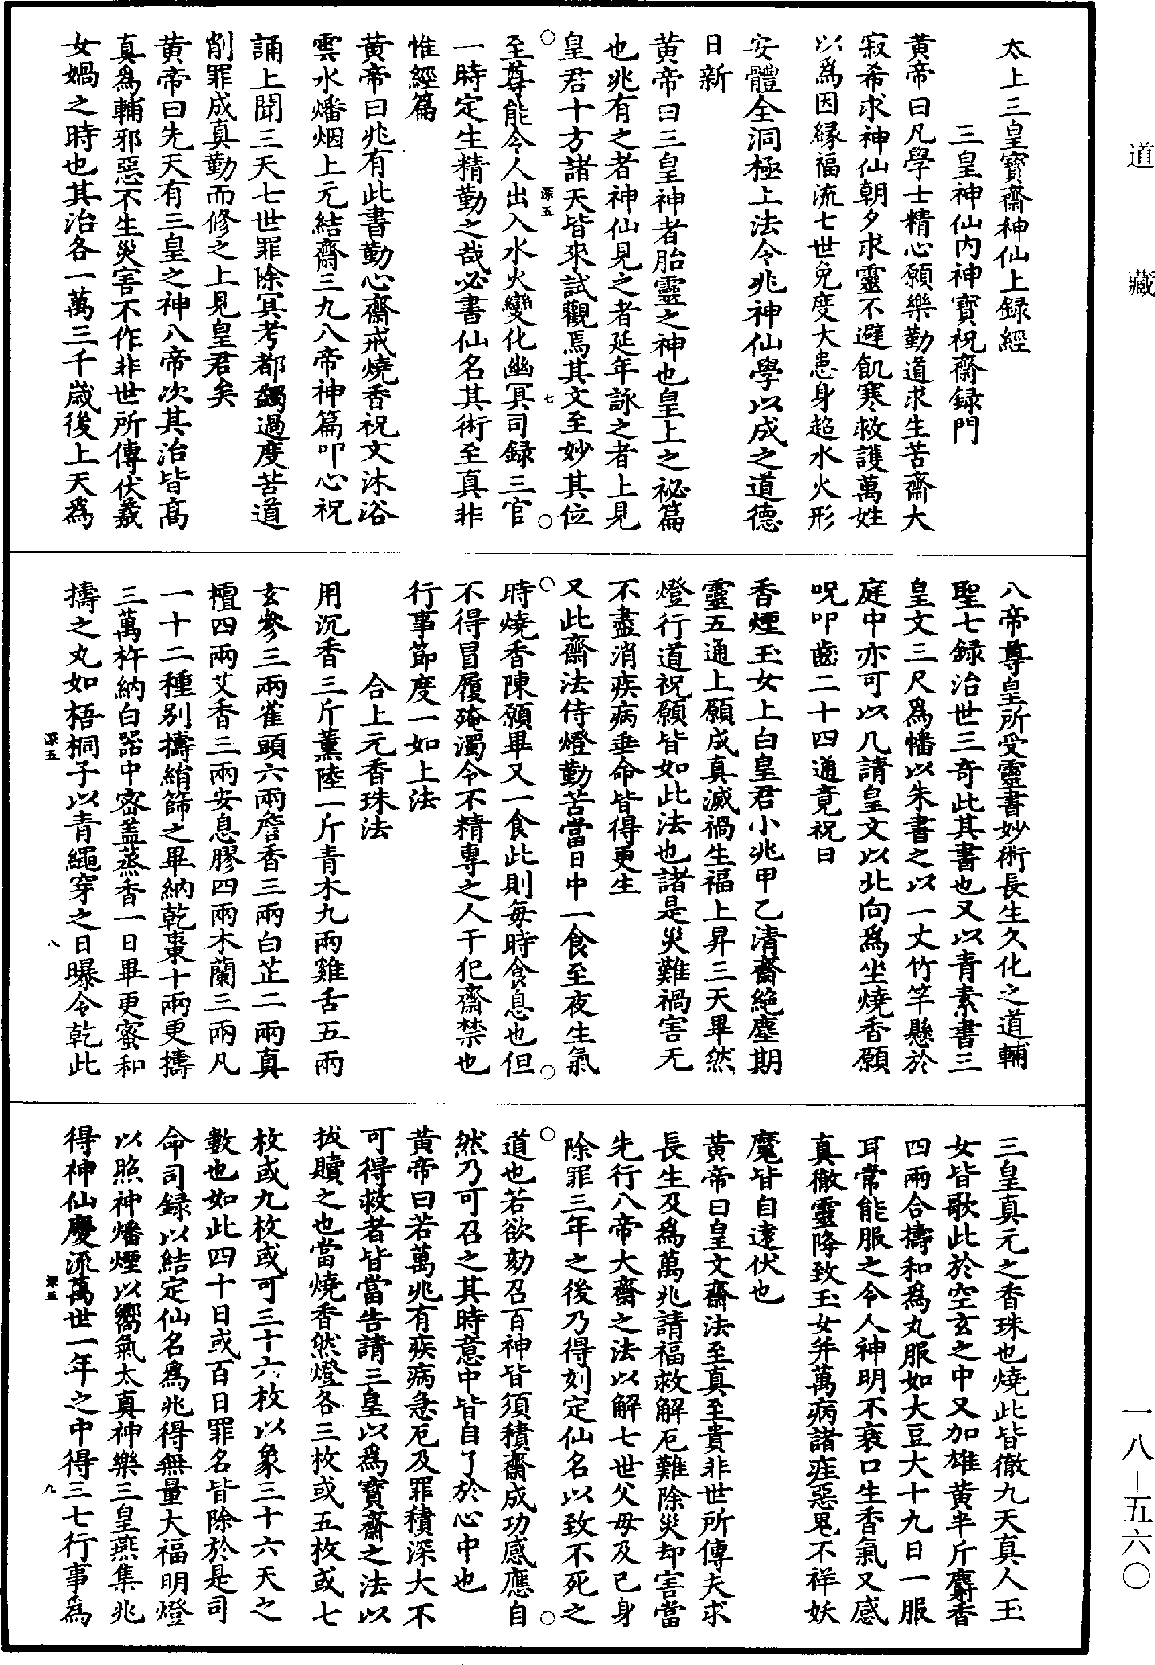 道藏
一八—五六〇
太上三皇寶齋神仙上録經
三皇神仙内神寶祝齋録門
黄帝曰凡學士精心願樂勤道求生苦齋大
寂希求神仙朝夕求靈不避飢寒救護萬姓
以爲因緣福流七世免度大患身超水火形
安體全洞極上法令兆神仙學以成之道德
日新
黄帝曰三皇神者胎靈之神也皇上之祕篇
也兆有之者神仙見之者延年詠之者上見
皇君十方諸天皆來試觀焉其文至妙其位
深五
七
至尊能令人出入水火變化幽冥司録三官
一時定生精勤之哉必書仙名其術至真非
惟經篇
黄帝曰兆有此書勤心齋戒燒香祝文沐浴
雲水燔烟上元結齋三九八帝神篇叩心祝
誦上聞三天七世罪除冥考都蠲過度苦道
削罪成真勤而修之上見皇君矣
黄帝曰先天有三皇之神八帝次其治皆髙
真爲輔邪惡不生災害不作非世所傳伏羲
女媧之時也其治各一萬三千歲後上天爲
八帝尊皇所受靈書妙術長生久化之道輔
聖七録治世三奇此其書也又以青素書三
皇文三尺爲幡以朱書之以一丈竹竿懸於
庭中亦可以几諸皇文以北向爲坐燒香願
呪叩齒二十四通竟祝曰
香煙玉女上白皇君小兆甲乙清齋絶塵期
靈五通上願成真滅禍生福上昇三天畢然
燈行道祝願皆如此法也諸是災難禍害无
不盡消疾病垂命皆得更生
又此齋法侍燈勤苦當日中一食至夜生氣
時燒香陳願畢又一食此則每時食息也但
不得冒履殗濁令不精專之人干犯齋禁也
行事節度一如上法
合上元香珠法
用沉香三斤薰陸一斤青木九兩雞舌五兩
玄參三兩雀頭六兩詹香三兩白芷二兩真
檀四兩艾香三兩安息膠四兩木蘭三兩凡
一十二種别擣絹篩之畢納乾棗十兩更擣
三萬杵納白器中密蓋蒸香一日畢更蜜和
擣之丸如梧桐子以青繩穿之日曝令乾此
深五
八
三皇真元之香珠也燒此皆徹九天真人玉
女皆歌此於空玄之中又加雄黄半斤麝香
四兩合擣和為丸服如大豆大十九日一服
耳常能服之令人神明不衰口生香氣又感
真徹靈降致玉女并萬病諸疰惡鬼不祥妖
魔皆自遠伏也
黄帝曰皇文齋法至真至貴非世所傳夫求
長生及爲萬兆請福救解厄難除災却害當
先行八帝大齋之法以解七世父母及己身
除罪三年之後乃得刻定仙名以致不死之
道也若欲劾召百神皆須積齋成功感應自
然乃可召之其時意中皆自了於心中也
黄帝曰若萬兆有疾病急厄及罪積深大不
可得救者皆當告請三皇以爲寶齋之法以
拔贖之也當燒香然燈各三枚或五枚或七
枚或九枚或可三十六枚以象三十六天之
數也如此四十日或百日罪名皆除於是司
命司録以結定仙名爲兆得無量大福明燈
以照神燔煙以嚮氣太真神樂三皇燕集兆
得神仙慶流萬世一年之中得三七行事爲
深五
九